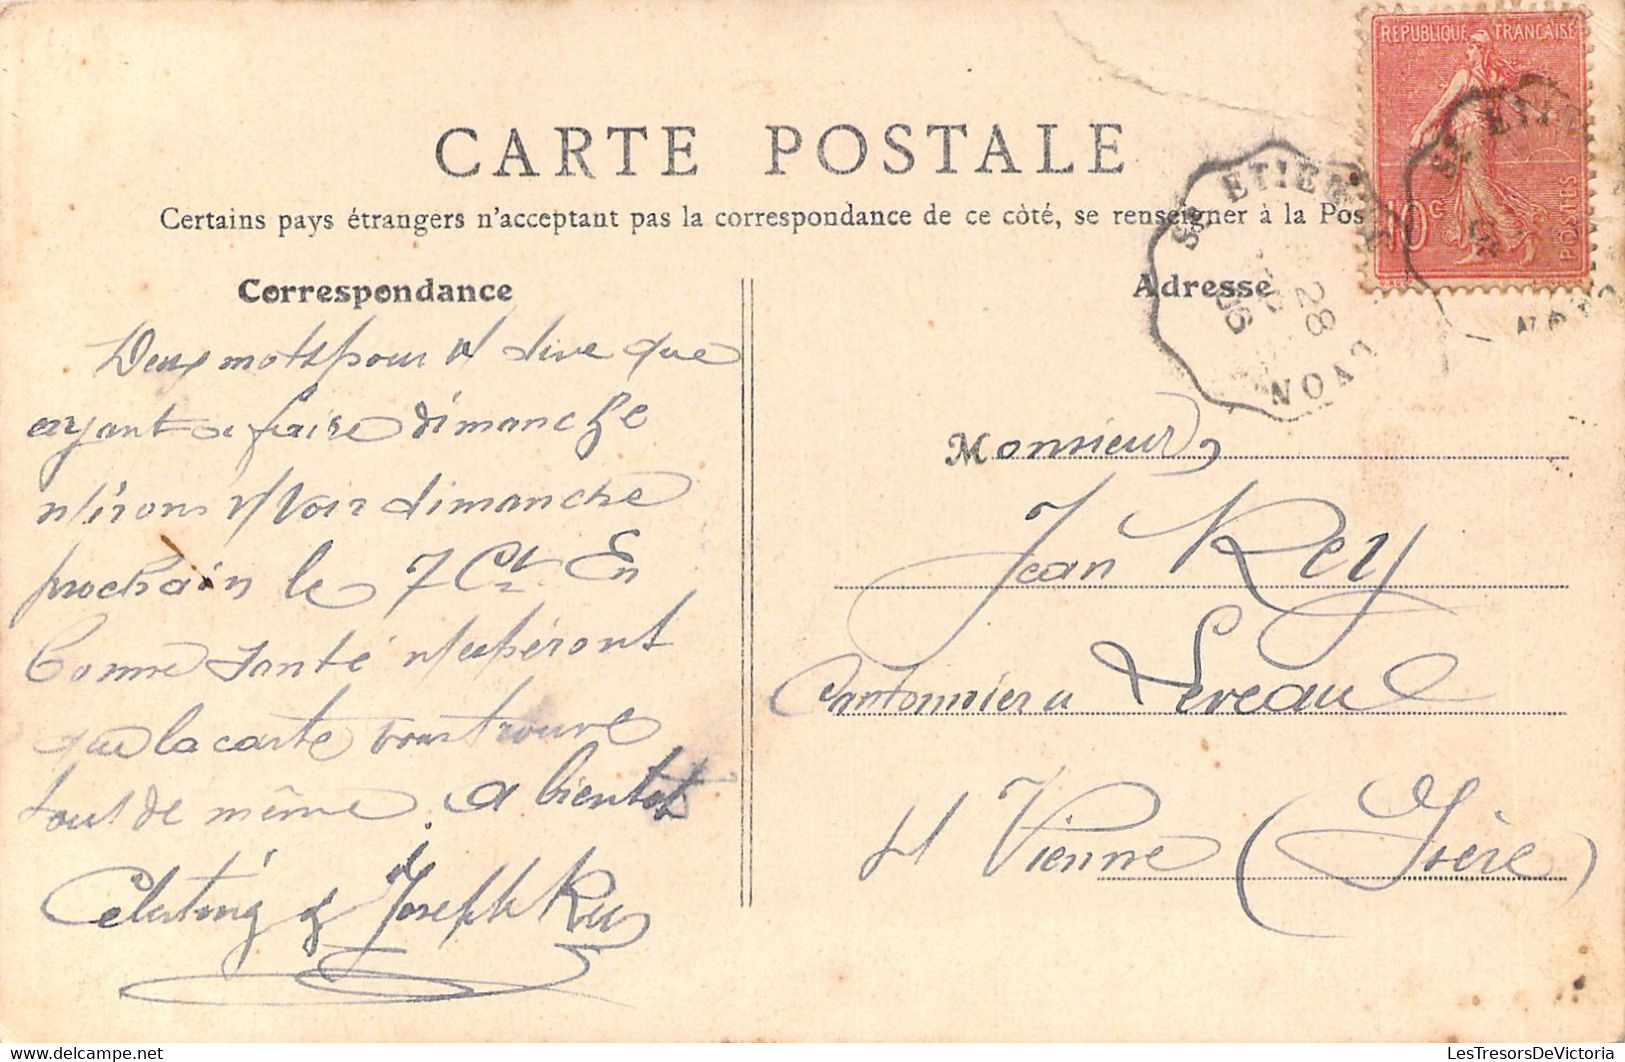 CARTE POSTALE
Certains pays étrangers n'acceptant pas la correspondance de ce côté, se renseigner à la Pos
Correspondance
Adresse
REPUBLIQUE FRANÇAISE
10c
POSTES
ST ETIENNE
28
06
LYON
ST ETIE
Deux mots pour vs dire que
ayant a faire dimanche
n/irons v/ voir dimanche
prochain le 7 Ct En
bonne Santé n/espéront
que la carte vous trouve
tout de même. a bientot
Joseph Rey
Monsieur,
Jean Rey
Cantonnier a Leveau
St Vienne (Isère)
Delcampe.net
LesTresorsDeVictoria